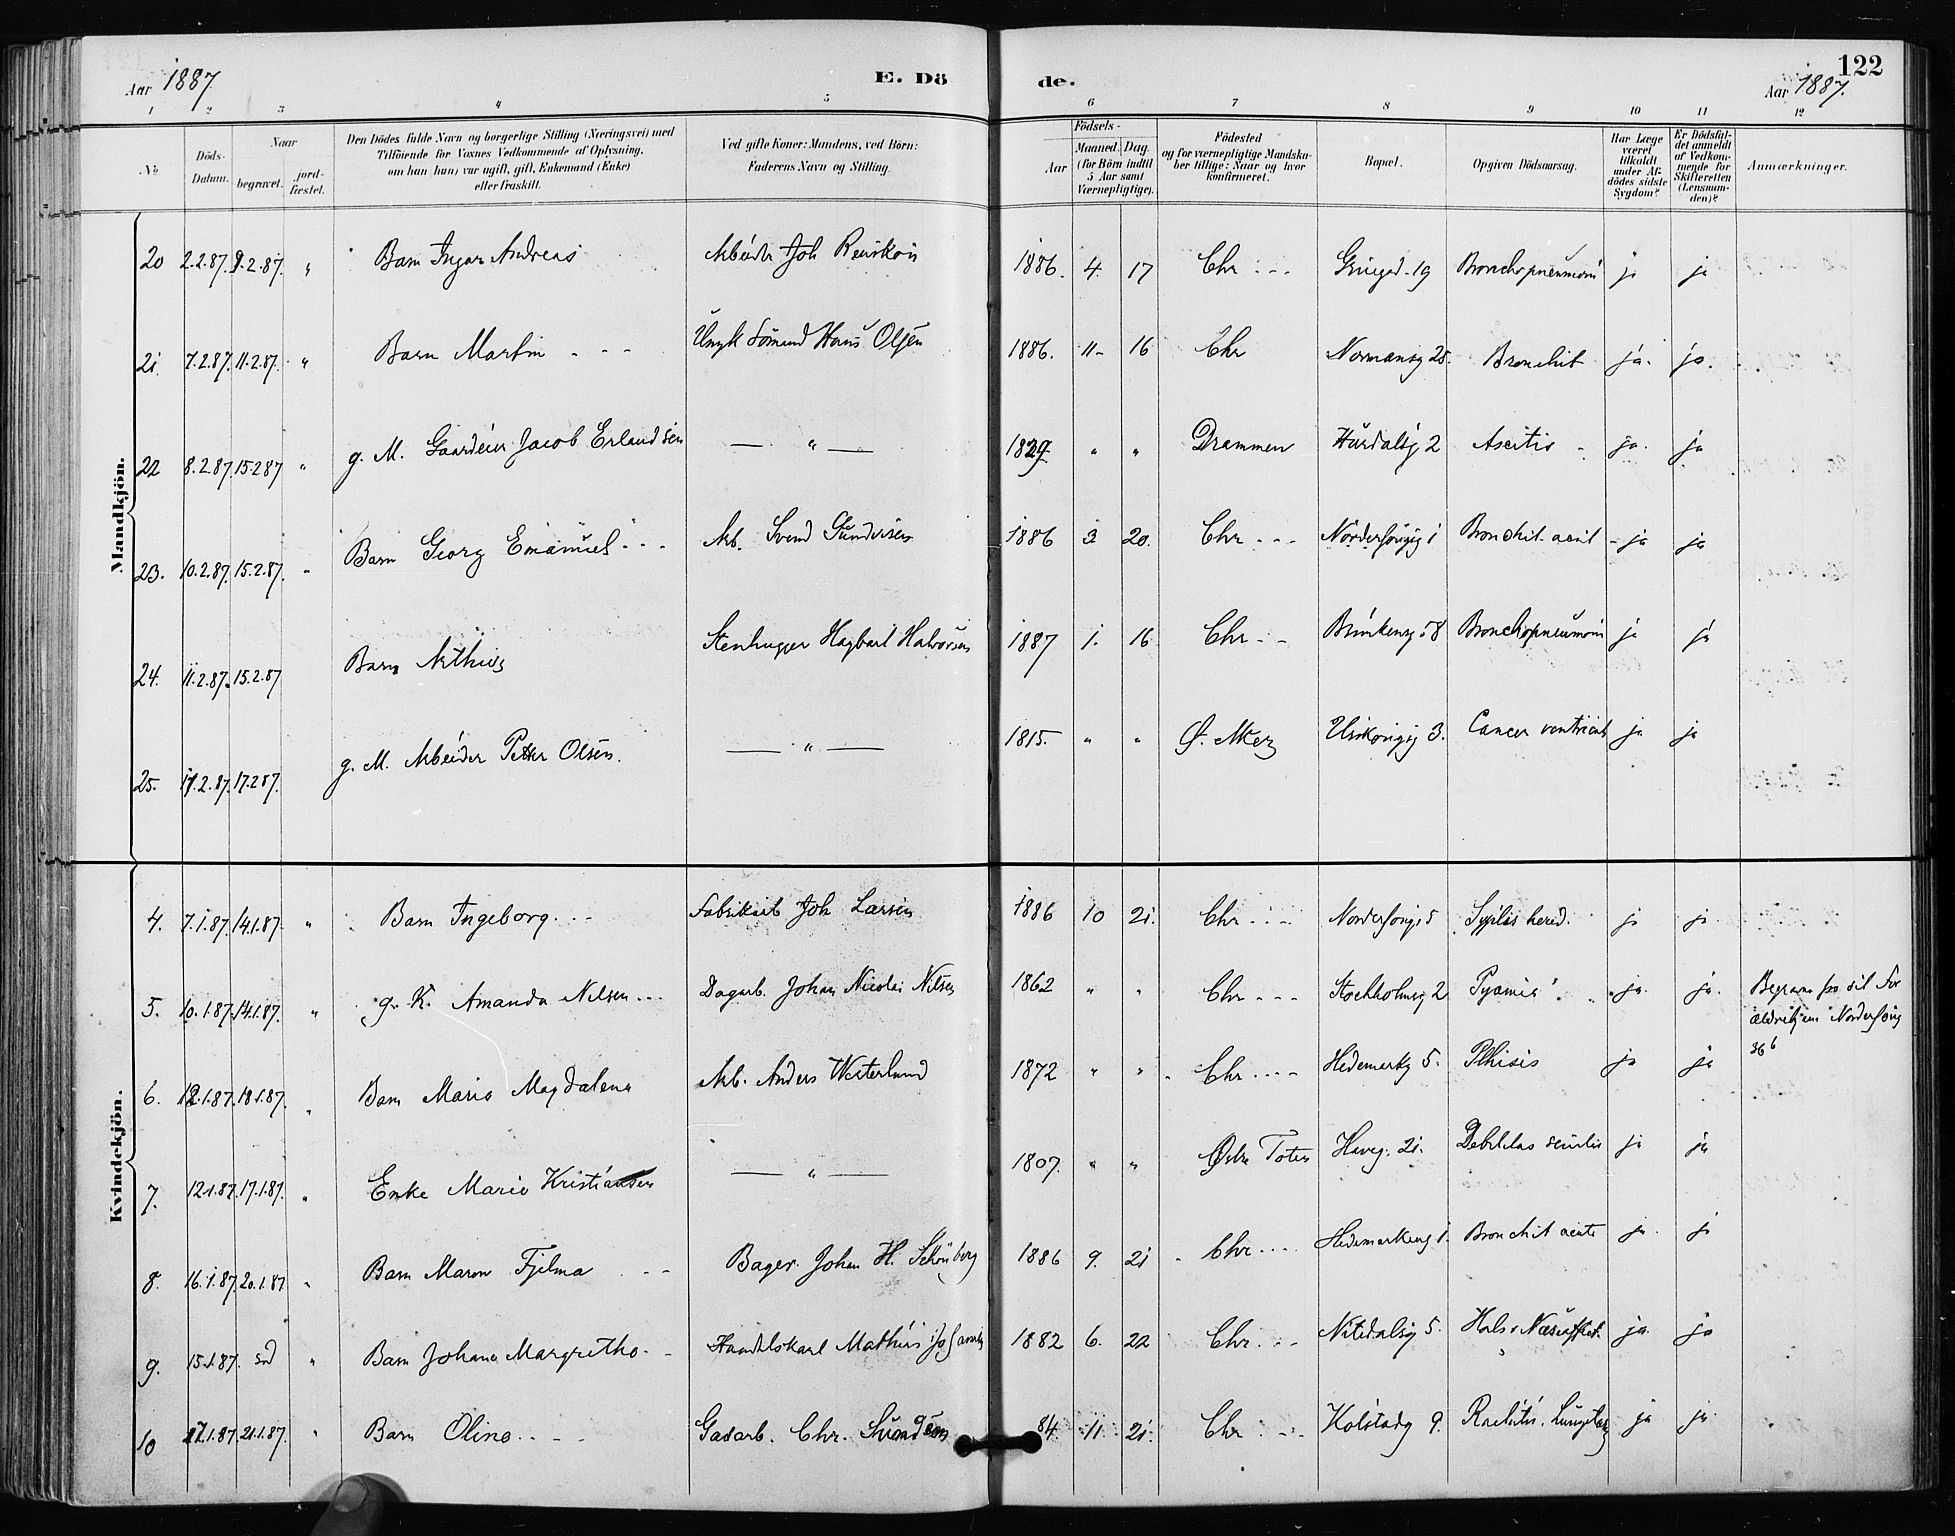 Aar 1887. E. Dö
de. 122
Aar 1887.
1 2 3 4 5 6 7 8 9 10 11 12
No
Döds-Datum.
Naar
begravet.
jord-fæstet.
Den Dödes fulde Navn og borgerlige Stilling (Næringsvei) med
Tilföiende for Voxnes Vedkommende af Oplysning,
om han (hun) var ugift, gift, Enkemand (Enke)
eller fraskilt.
Ved gifte Koner: Mandens, ved Börn:
Faderens Navn og Stilling
Födsels-
Aar
Maaned. Dag.
(for Börn indtil
5 Aar samt
Værnepligtige).
Födested
og for værnepligtige Mandska-
ber tillige: Naar og hvor
konfirmeret.
Bopæl.
Opgiven Dödsaarsag.
Har Læge
været
tilkaldt
under Af-
dödes sidste
Sygdom?
Er Dödsfal-
det anmeldt
af Vedkom-
mende for
Skifteretten
(Lensman-
den)?
Anmærkninger.
Mandkjön.
20 2.2.87. 9.2.87. " Barn Ingar Andreas Arbeider Joh 1886. 4. 17 Chr Grüegd. 19 Bronchopneumoni ja ja
21 7.2.87. 11.2.87. " Barn Martin Ungk Sömand Hans Olsen 1886. 11 16 Chr Normansg 25. Bronchit ja. ja.
22 8.2.87 15.2.87 " g. M. Gaardeier Jacob Erlandsen — " — 1829 " " Drammen Hurdalsg 2 Ascites ja. ja
23. 10.2.87. 15.2.87. " Barn Georg Emanuel Arb. Svend Gundersen 1886 3 20. Chr Norderhovsg 1 Bronchit acut ja ja
24. 11.2.87. 15.2.87 Barn Arthur Stenhugger Hagbart Halvorsen 1887 1. 16 Chr Brinkensg 58 Bronchopneumoni ja ja
25. 11.2.87. 17.2.87. g. M. Arbeider Petter Olsen. — " — 1815. " " Ø. Aker 3. Cancer ventriculi ja ja
Kvindekjön.
4. 7.1.87. 14.1.87 " Barn Ingeborg Fabrikarb Joh Larsen 1886 10 21. Chr Norderhovg. 5 Syfilis hered. ja ja.
5. 10.1.87. 14.1.87. " g. K. Amanda Nilsen Dagarb. Johan Nicolai Nilsen 1862 " " Chr Stockholmsg 2 Pyämie ja. ja. Begrave fra sit For
ældrehjem Norderhovsg
36 b
6. 12.1.87. 18.1.87. " Barn Marie Magdalena Arb. Anders Westerlund 1872 " " Chr Hedemarksg 5. Pthisis ja ja
7. 12.1.87. 17.1.87. " Enke Marie Kristiansen — " — 1807. " " Østre Toten Haveg. 21. Debilitas senilis ja ja
8. 16.1.87. 20.1.87 " Barn Maren Fjelma Bager. Johan H. Schönberg 1886 9. 21 Chr Hedemarkeng 1. Bronchit acute ja ja
9. 15.1.87. sd " Barn Johane Margrethe Handelskarl Mathias Johansen 1882 6. 22 Chr. Nitedalsg 5. Hals ja. ja
10 17.1.87. 21.1.87. " Barn Oline Gadarb. Chr. Svendsen 84. 11. 21. Chr Kolstadg 9. Rachitis. ja ja